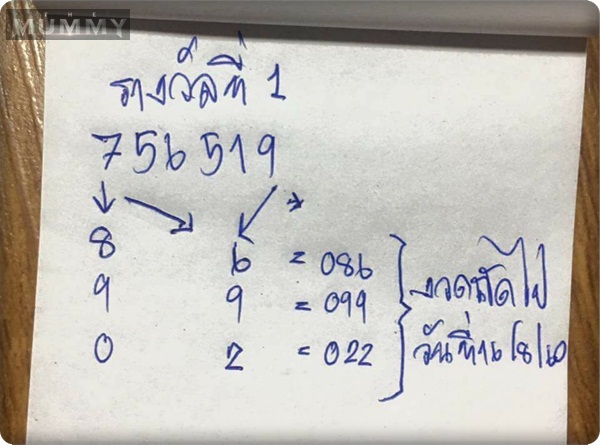 MUMMY
รางวัลที่ 1
756519
8 6 = 086
9 9 = 099 งวดถัดไป
0 2 = 022 วันที่ 16/8/60